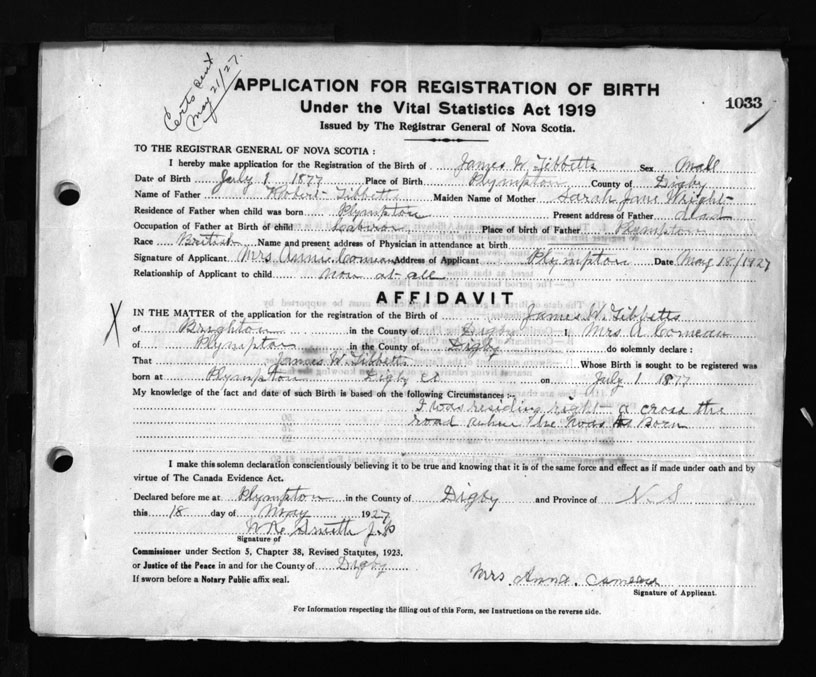 Certs sent
May 21/27.
APPLICATION FOR REGISTRATION OF BIRTH
Under the Vital Statistics Act 1919
1033
Issued by The Registrar General of Nova Scotia.
TO THE REGISTRAR GENERAL OF NOVA SCOTIA :
I hereby make application for the Registration of the Birth of James W. Tibbetts Sex Mall
Date of Birth July 1 1877 Place of Birth Plympton County of Digby
Name of Father Robert Tibbetts Maiden Name of Mother Sarah Jane Wright
Residence of Father when child was born Plympton Present address of Father dead
Occupation of Father at Birth of child Place of birth of Father Plympton
Race British Name and present address of Physician in attendance at birth
Signature of Applicant Mrs Annie Comeau Address of Applicant Plympton Date May 18/1927
Relationship of Applicant to child non at all
AFFIDAVIT
X
IN THE MATTER of the application for the registration of the Birth of James W. Tibbetts
of Brighton in the County of Digby I, Mrs A Comeau
of Plympton in the County of Digby do solemnly declare :
That James W. Tibbetts Whose Birth is sought to be registered was
born at Plympton Digby Co on July 1 1877
My knowledge of the fact and date of such Birth is based on the following Circumstances :-
I was residing right a cross the
road when he was Born
I make this solemn declaration conscientiously believing it to be true and knowing that it is of the same force and effect as if made under oath and by
virtue of The Canada Evidence Act.
Declared before me at Plympton in the County of Digby and Province of N. S
this 18 day of May 1927
Smith J.P
Signature of
Commissioner under Section 5, Chapter 38, Revised Statutes, 1923.
or Justice of the Peace in and for the County of Digby
If sworn before a Notary Public affix seal.
Mrs. Anna. Comeau
Signature of Applicant.
For Information respecting the filling out of this Form, see Instructions on the reverse side.